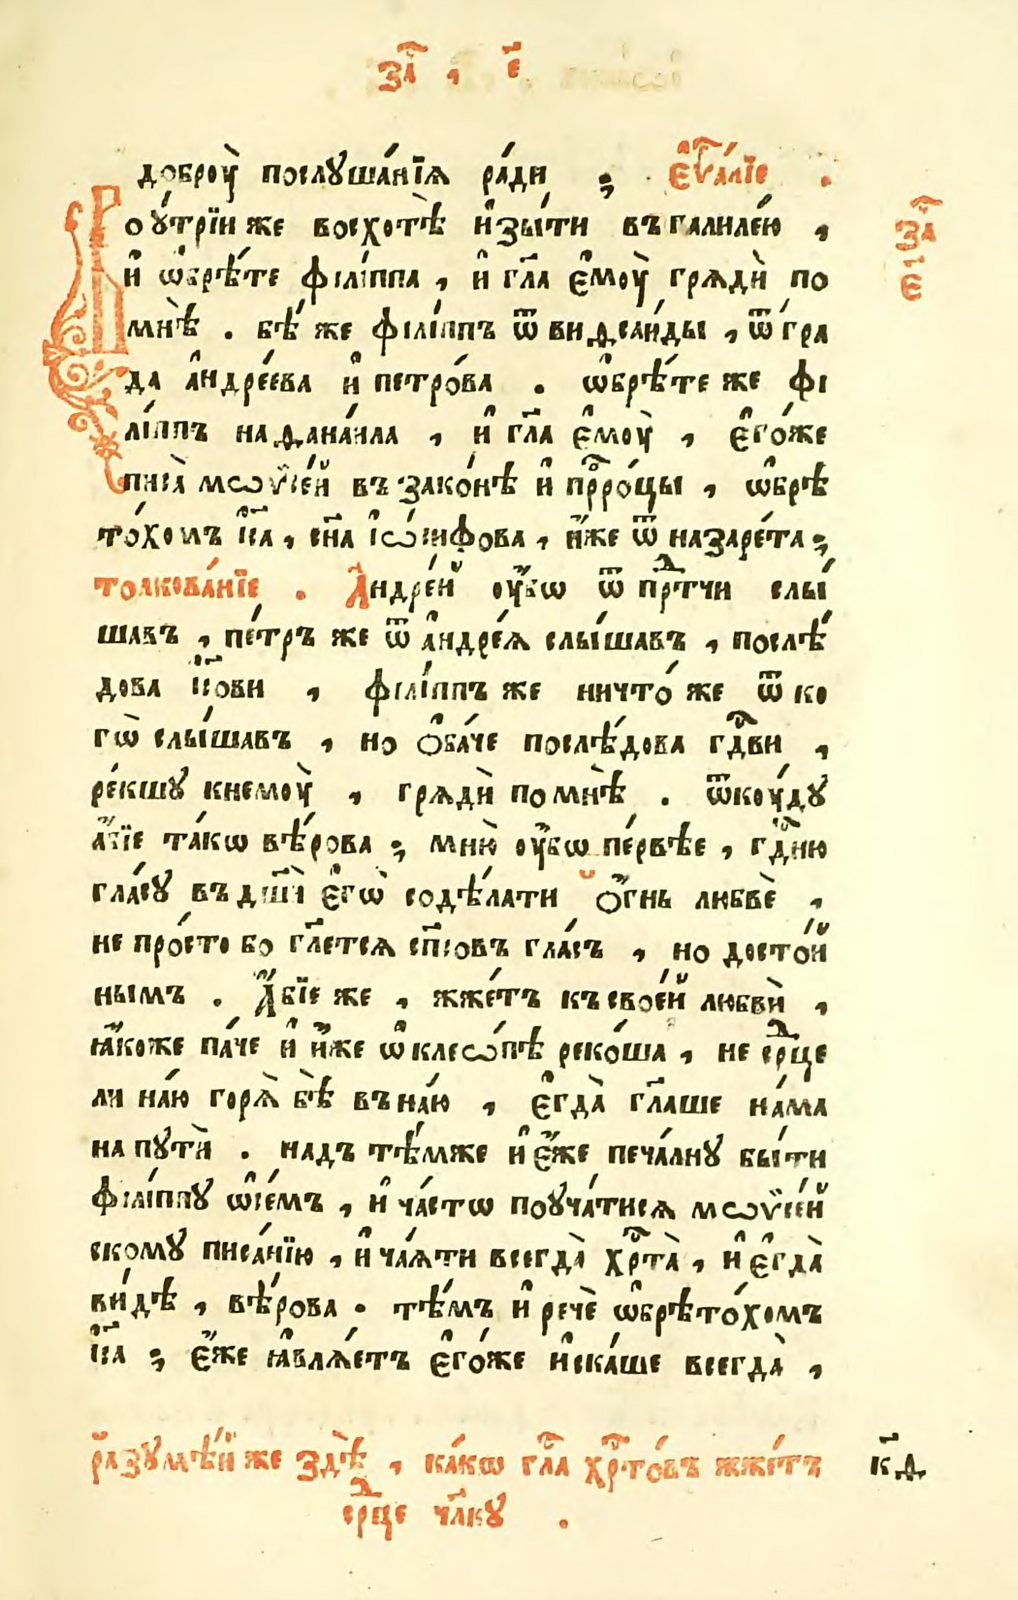 за҇ , е҃
доброу̀ послꙋша́нїѧ ра́ди ; є҆ѵⷢ҇а́лїе .
Воу́трїи же восхотѣ̀ и҆зы́ти въ галиле́ю ,
за҇
и҆ ѡ҆брѣ́те фїлі́ппа , и҆ гл҃а є҆моу̀ грѧдѝ по
є҃і
мнѣ̀ . бѣ́ же фїлі́ппъ ѿ виѳсаи́ды , ѿ гра
да а҆ндре́ева и҆ петро́ва . ѡ҆брѣ́те же фі
лі́ппъ наѳана́ила , и҆ гл҃а є҆моу̀ , є҆го́же
писа̀ мѡѷсі́й въ зако́нѣ и҆ прⷪ҇ро́цы , ѡ҆брѣ
то́хомъ і҆и҃са , сн҃а і҆ѡ́сифова , и҆́же ѿ назаре́та ;
толкова́нїе . А҆ндре́й оу҆́бѡ ѿ прⷣте́чи слы́
шавъ , пе́тръ же ѿ а҆ндре́ѧ слы́шавъ , послѣ́
дова і҆и҃сови , фїлі́ппъ же ничто́ же ѿ ко
гѡ̀ слы́шавъ , но ѻ҆ба́че послѣ́дова гдⷭ҇ви ,
ре́кшꙋ кнемоу̀ , грѧдѝ по мнѣ̀ . ѿкоу́дꙋ
а҆́бїе та́кѡ вѣ́рова ; мню̀ оу҆́бѡ пе́рвѣе , гдⷭ҇ню
гла́сꙋ въ дш҃ѝ є҆гѡ̀ содѣ́лати ѻ҆́гнь любвѐ ,
не про́сто бо гл҃етсѧ сп҃совъ гла́съ , но досто́й
нымъ . А҆́бїе же , жже́тъ къ свое́й любвѝ ,
ꙗ҆́коже па́че и҆ и҆́же ѡ҆ клеѡ́пѣ реко́ша , не срⷣце
ли на́ю горѧ̀ бѣ̀ въ на́ю , є҆гда̀ гл҃аше на́ма
на пꙋтѝ . надъ тѣ́мже и҆ є҆́же печа́лнꙋ бы́ти
фїлі́ппꙋ ѡ҆ се́мъ , и҆ ча́стѡ поꙋча́тисѧ мѡѷсі́й
скомꙋ писа́нїю , и҆ ча́ѧти всегда̀ хрⷭ҇та̀ , и҆ є҆гда̀
ви́дѣ , вѣ́рова . тѣ́мъ и҆ речѐ ѡ҆брѣто́хомъ
і҆и҃са ; є҆́же ꙗ҆влѧ́етъ є҆го́же и҆ска́ше всегда̀ ,
разꙋмѣ́й же здѣ̀ , ка́кѡ гл҃а хрⷭ҇то́въ жже́тъ
к҃ѳ
срⷣце чл҃кꙋ .